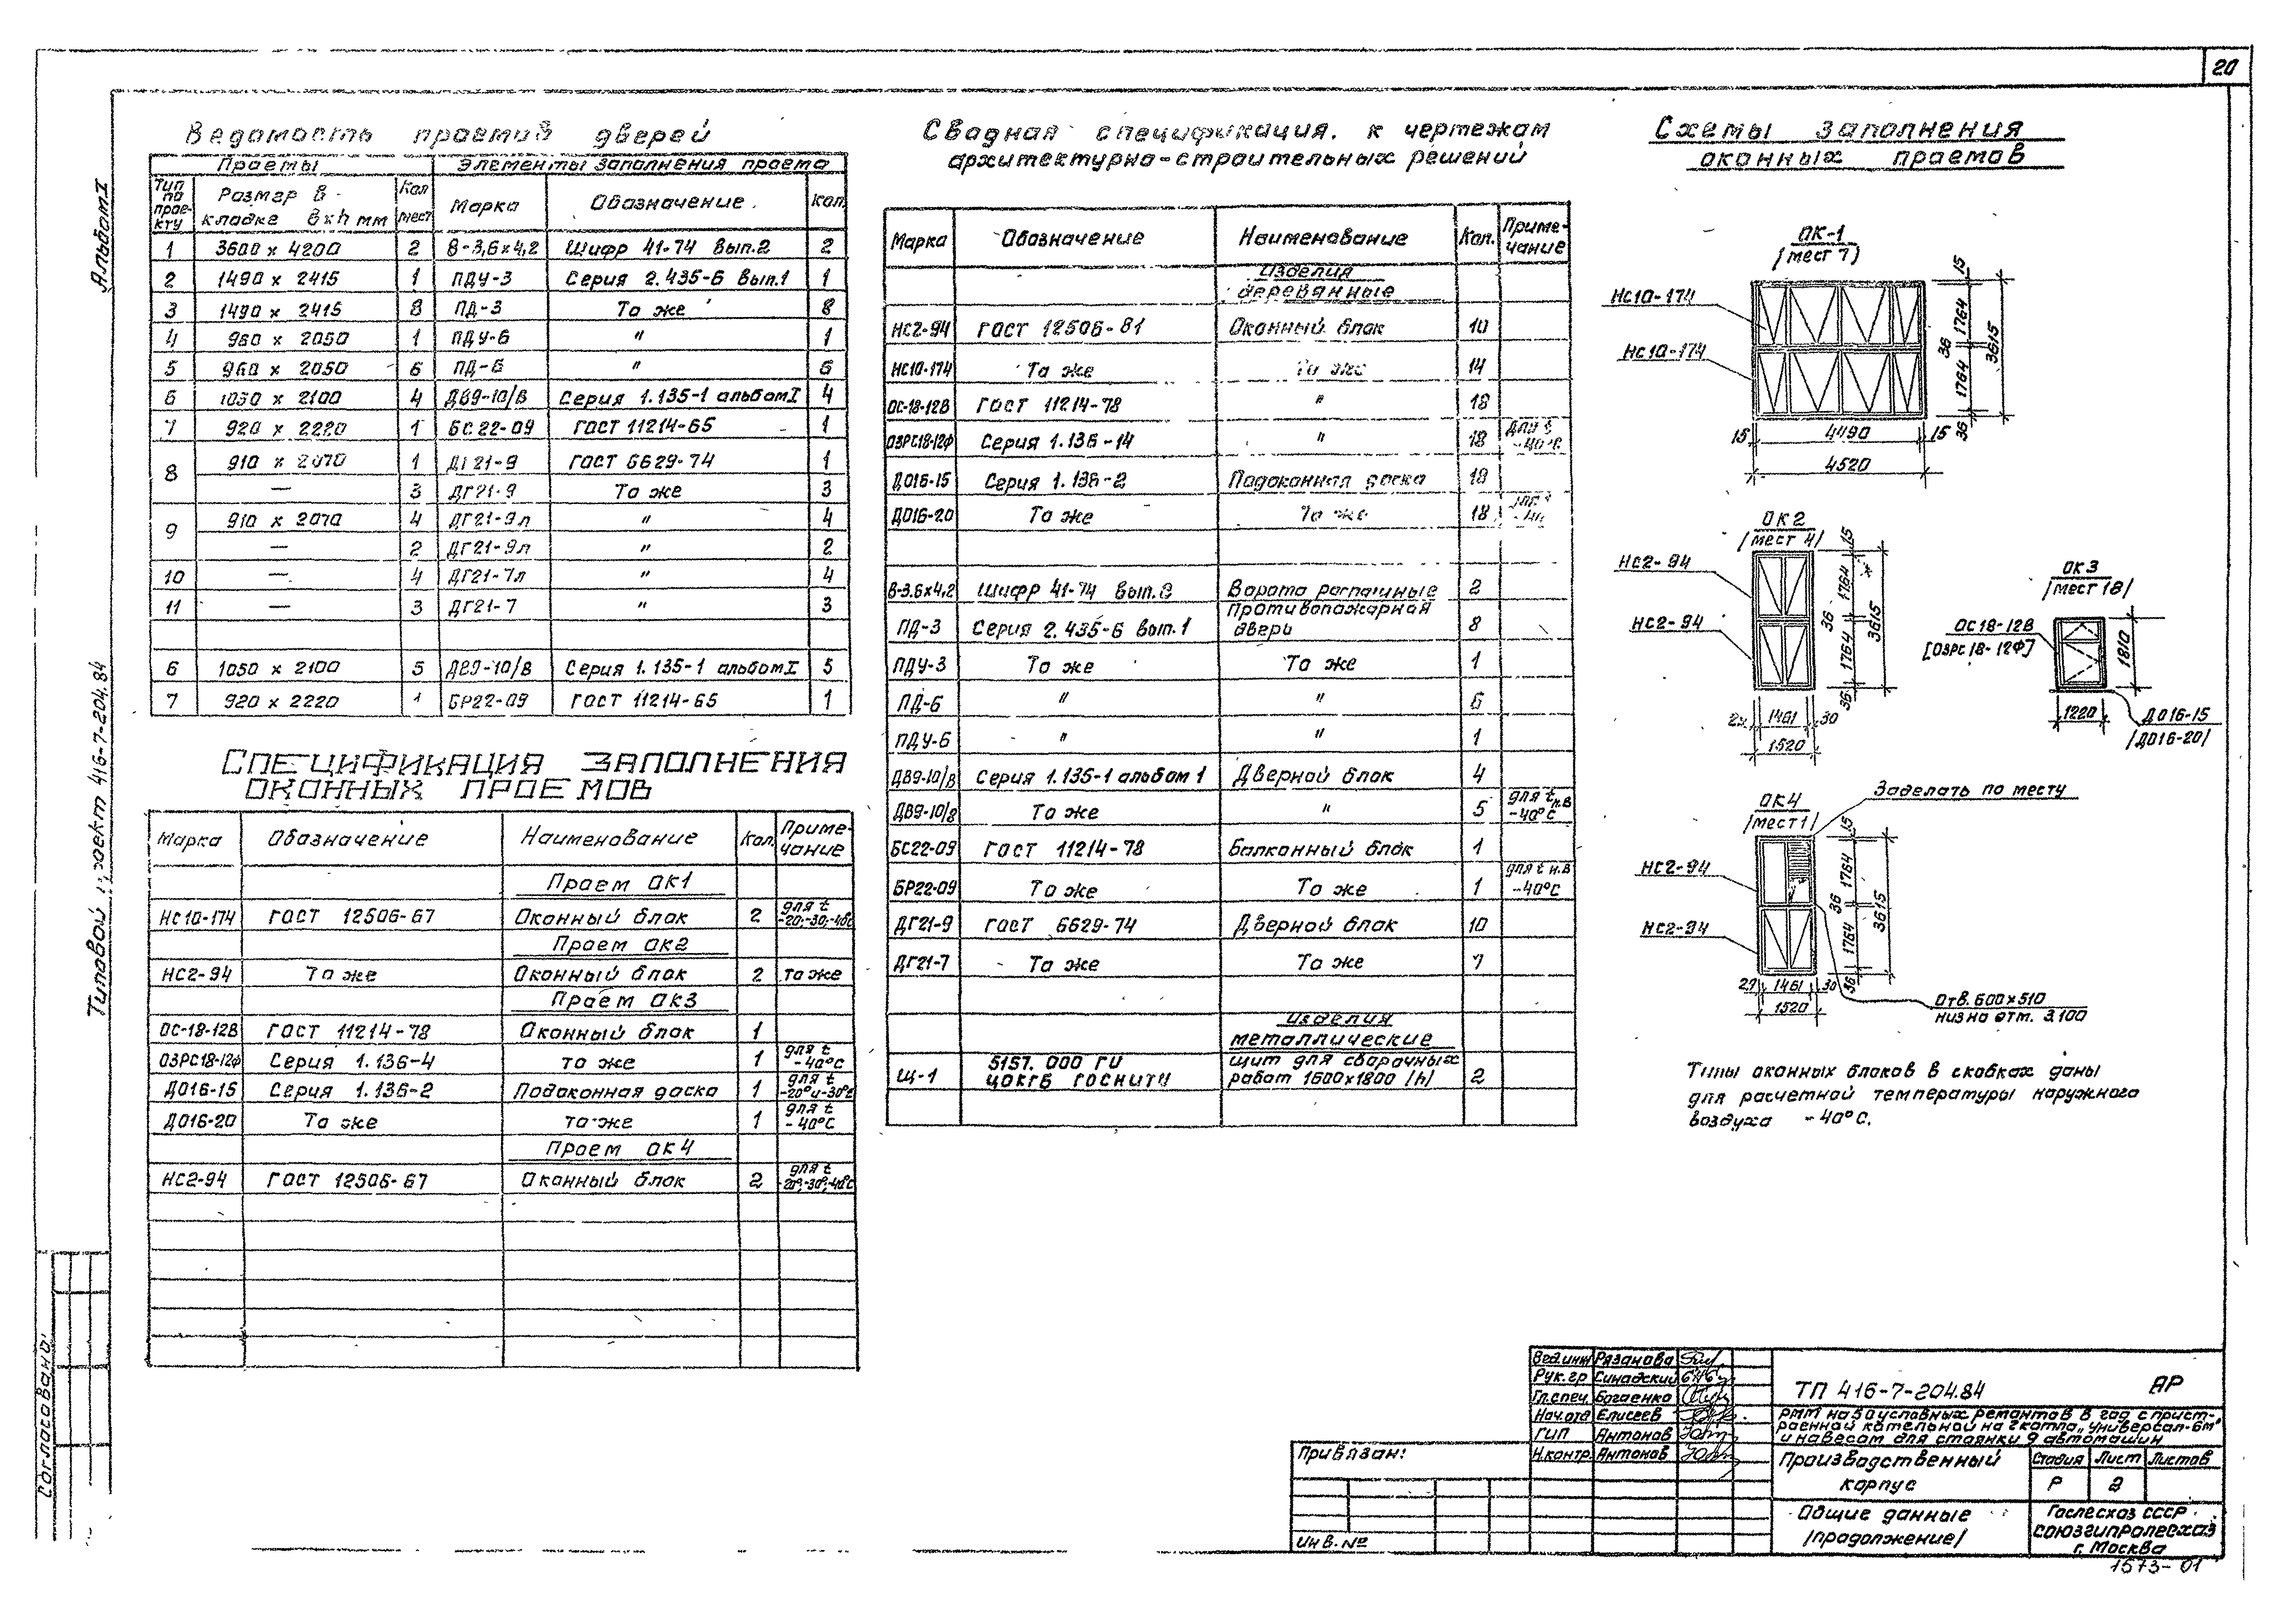 20
Альбом I
Типовой проект 416-7-204.84
Согласовано:
Ведомость проемов дверей
Проемы | Элементы заполнения проема
Тип по проекту | Размер в кладке вхh мм | Кол мест | Марка | Обозначение | Кол.
1 | 3600 х 4200 | 2 | В-3,6х4,2 | Шифр 41-74 вып.2 | 2
2 | 1490 х 2415 | 1 | ПДУ-3 | Серия 2.435-6 вып.1 | 1
3 | 1490 х 2415 | 8 | ПД-3 | То же | 8
4 | 960 х 2050 | 1 | ПДУ-6 | " | 1
5 | 960 х 2050 | 6 | ПД-6 | " | 6
6 | 1050 х 2100 | 4 | ДВ9-10/В | Серия 1.135-1 альбом I | 4
7 | 920 х 2220 | 1 | БС22-09 | ГОСТ 11214-65 | 1
8 | 910 х 2070 | 1 | ДГ21-9 | ГОСТ 6629-74 | 1
— | 3 | ДГ21-9 | То же | 3
9 | 910 х 2070 | 4 | ДГ21-9л | " | 4
— | 2 | ДГ21-9л | " | 2
10 | — | 4 | ДГ21-7л | " | 4
11 | — | 3 | ДГ21-7 | " | 3
6 | 1050 х 2100 | 5 | ДВ9-10/В | Серия 1.135-1 альбом I | 5
7 | 920 х 2220 | 1 | БР22-09 | ГОСТ 11214-65 | 1
Спецификация заполнения
оконных проемов
Марка | Обозначение | Наименование | Кол. | Примечание
Проем ОК1
НС10-174 | ГОСТ 12506-67 | Оконный блок | 2 | для t -20;-30;-40с
Проем ОК2
НС2-94 | То же | Оконный блок | 2 | то же
Проем ОК3
ОС-18-12В | ГОСТ 11214-78 | Оконный блок | 1
ОЗРС18-12Ф | Серия 1.136-4 | то же | 1 | для t -40°С
ДО16-15 | Серия 1.136-2 | Подоконная доска | 1 | для t -20°и-30°С
ДО16-20 | То же | то же | 1 | для t -40°С
Проем ОК4
НС2-94 | ГОСТ 12506-67 | Оконный блок | 2 | для t -20°;-30°;-40°С
Сводная спецификация к чертежам
архитектурно-строительных решений
Марка | Обозначение | Наименование | Кол. | Примечание
Изделия
деревянные
НС2-94 | ГОСТ 12506-81 | Оконный блок | 10
НС10-174 | То же | То же | 14
ОС-18-12В | ГОСТ 11214-78 | " | 18
ОЗРС18-12Ф | Серия 1.136-14 | " | 18 | для t -40°С
ДО16-15 | Серия 1.136-2 | Подоконная доска | 18
ДО16-20 | То же | То же | 18
В-3.6х4,2 | Шифр 41-74 вып.2 | Ворота распашные | 2
ПД-3 | Серия 2.435-6 вып.1 | Противопожарная дверь | 8
ПДУ-3 | То же | То же | 1
ПД-6 | " | " | 6
ПДУ-6 | " | " | 1
ДВ9-10/В | Серия 1.135-1 альбом 1 | Дверной блок | 4
ДВ9-10/В | То же | " | 5 | для t н.в -40°С
БС22-09 | ГОСТ 11214-78 | Балконный блок | 1
БР22-09 | То же | То же | 1 | для t н.в -40°С
ДГ21-9 | ГОСТ 6629-74 | Дверной блок | 10
ДГ21-7 | То же | То же | 7
Изделия
металлические
Щ-1 | 5157.000 ГИ ЦОКТБ ГОСНИТИ | щит для сварочных работ 1600х1800 /h/ | 2
Схемы заполнения
оконных проемов
ОК-1
/мест 7/
НС10-174
НС10-174
15
1764
36
1764
36
3615
15 4490 15
4520
ОК2
/мест 4/
НС2-94
НС2-94
15
1764
36
1764
36
3615
1461 30
1520
ОК3
/мест 18/
ОС18-12В
[ОЗРС18-12Ф]
1810
1220
ДО16-15
/ДО16-20/
ОК4
/мест 1/
Заделать по месту
НС2-94
НС2-94
15
1764
36
1764
36
3615
29 1461 30
1520
Отв. 600х510
низ на отм. 3.100
Типы оконных блоков в скобках даны
для расчетной температуры наружного
воздуха -40°С.
Вед.инж Рязанова
Рук.гр Синадский
Гл.спец. Богаенко
Нач.отд Елисеев
ГИП Антонов
Н.контр. Антонов
Привязан:
Инв.№
ТП 416-7-204.84 АР
РММ на 50 условных ремонтов в год с прист-
роенной котельной на 2 котла „Универсал-6м"
и навесом для стоянки 9 автомашин
Производственный
корпус
Стадия Лист Листов
Р 2
Общие данные
/продолжение/
Гослесхоз СССР
СОЮЗГИПРОЛЕСХОЗ
г. Москва
1573-01